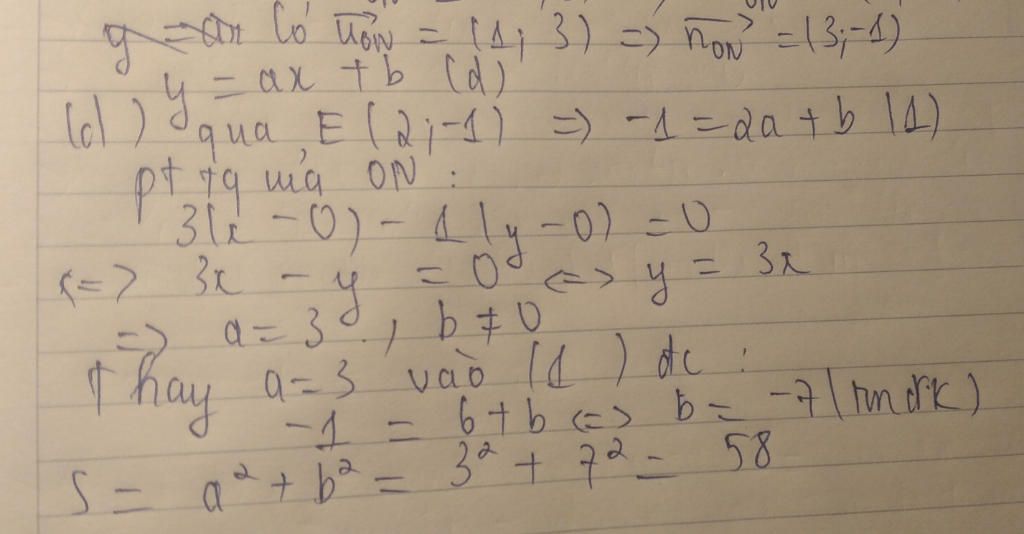 có u⃗ON = (1; 3) => n⃗ON = (3; -1)
y = ax + b (d)
(d) qua E (2; -1) => -1 = 2a + b (1)
pt tq của ON :
3(x - 0) - 1(y - 0) = 0
<=> 3x - y = 0 <=> y = 3x
=> a = 3, b ≠ 0
Thay a = 3 vào (1) dc :
-1 = 6 + b <=> b = -7 (tmđk)
S = a² + b² = 3² + 7² = 58